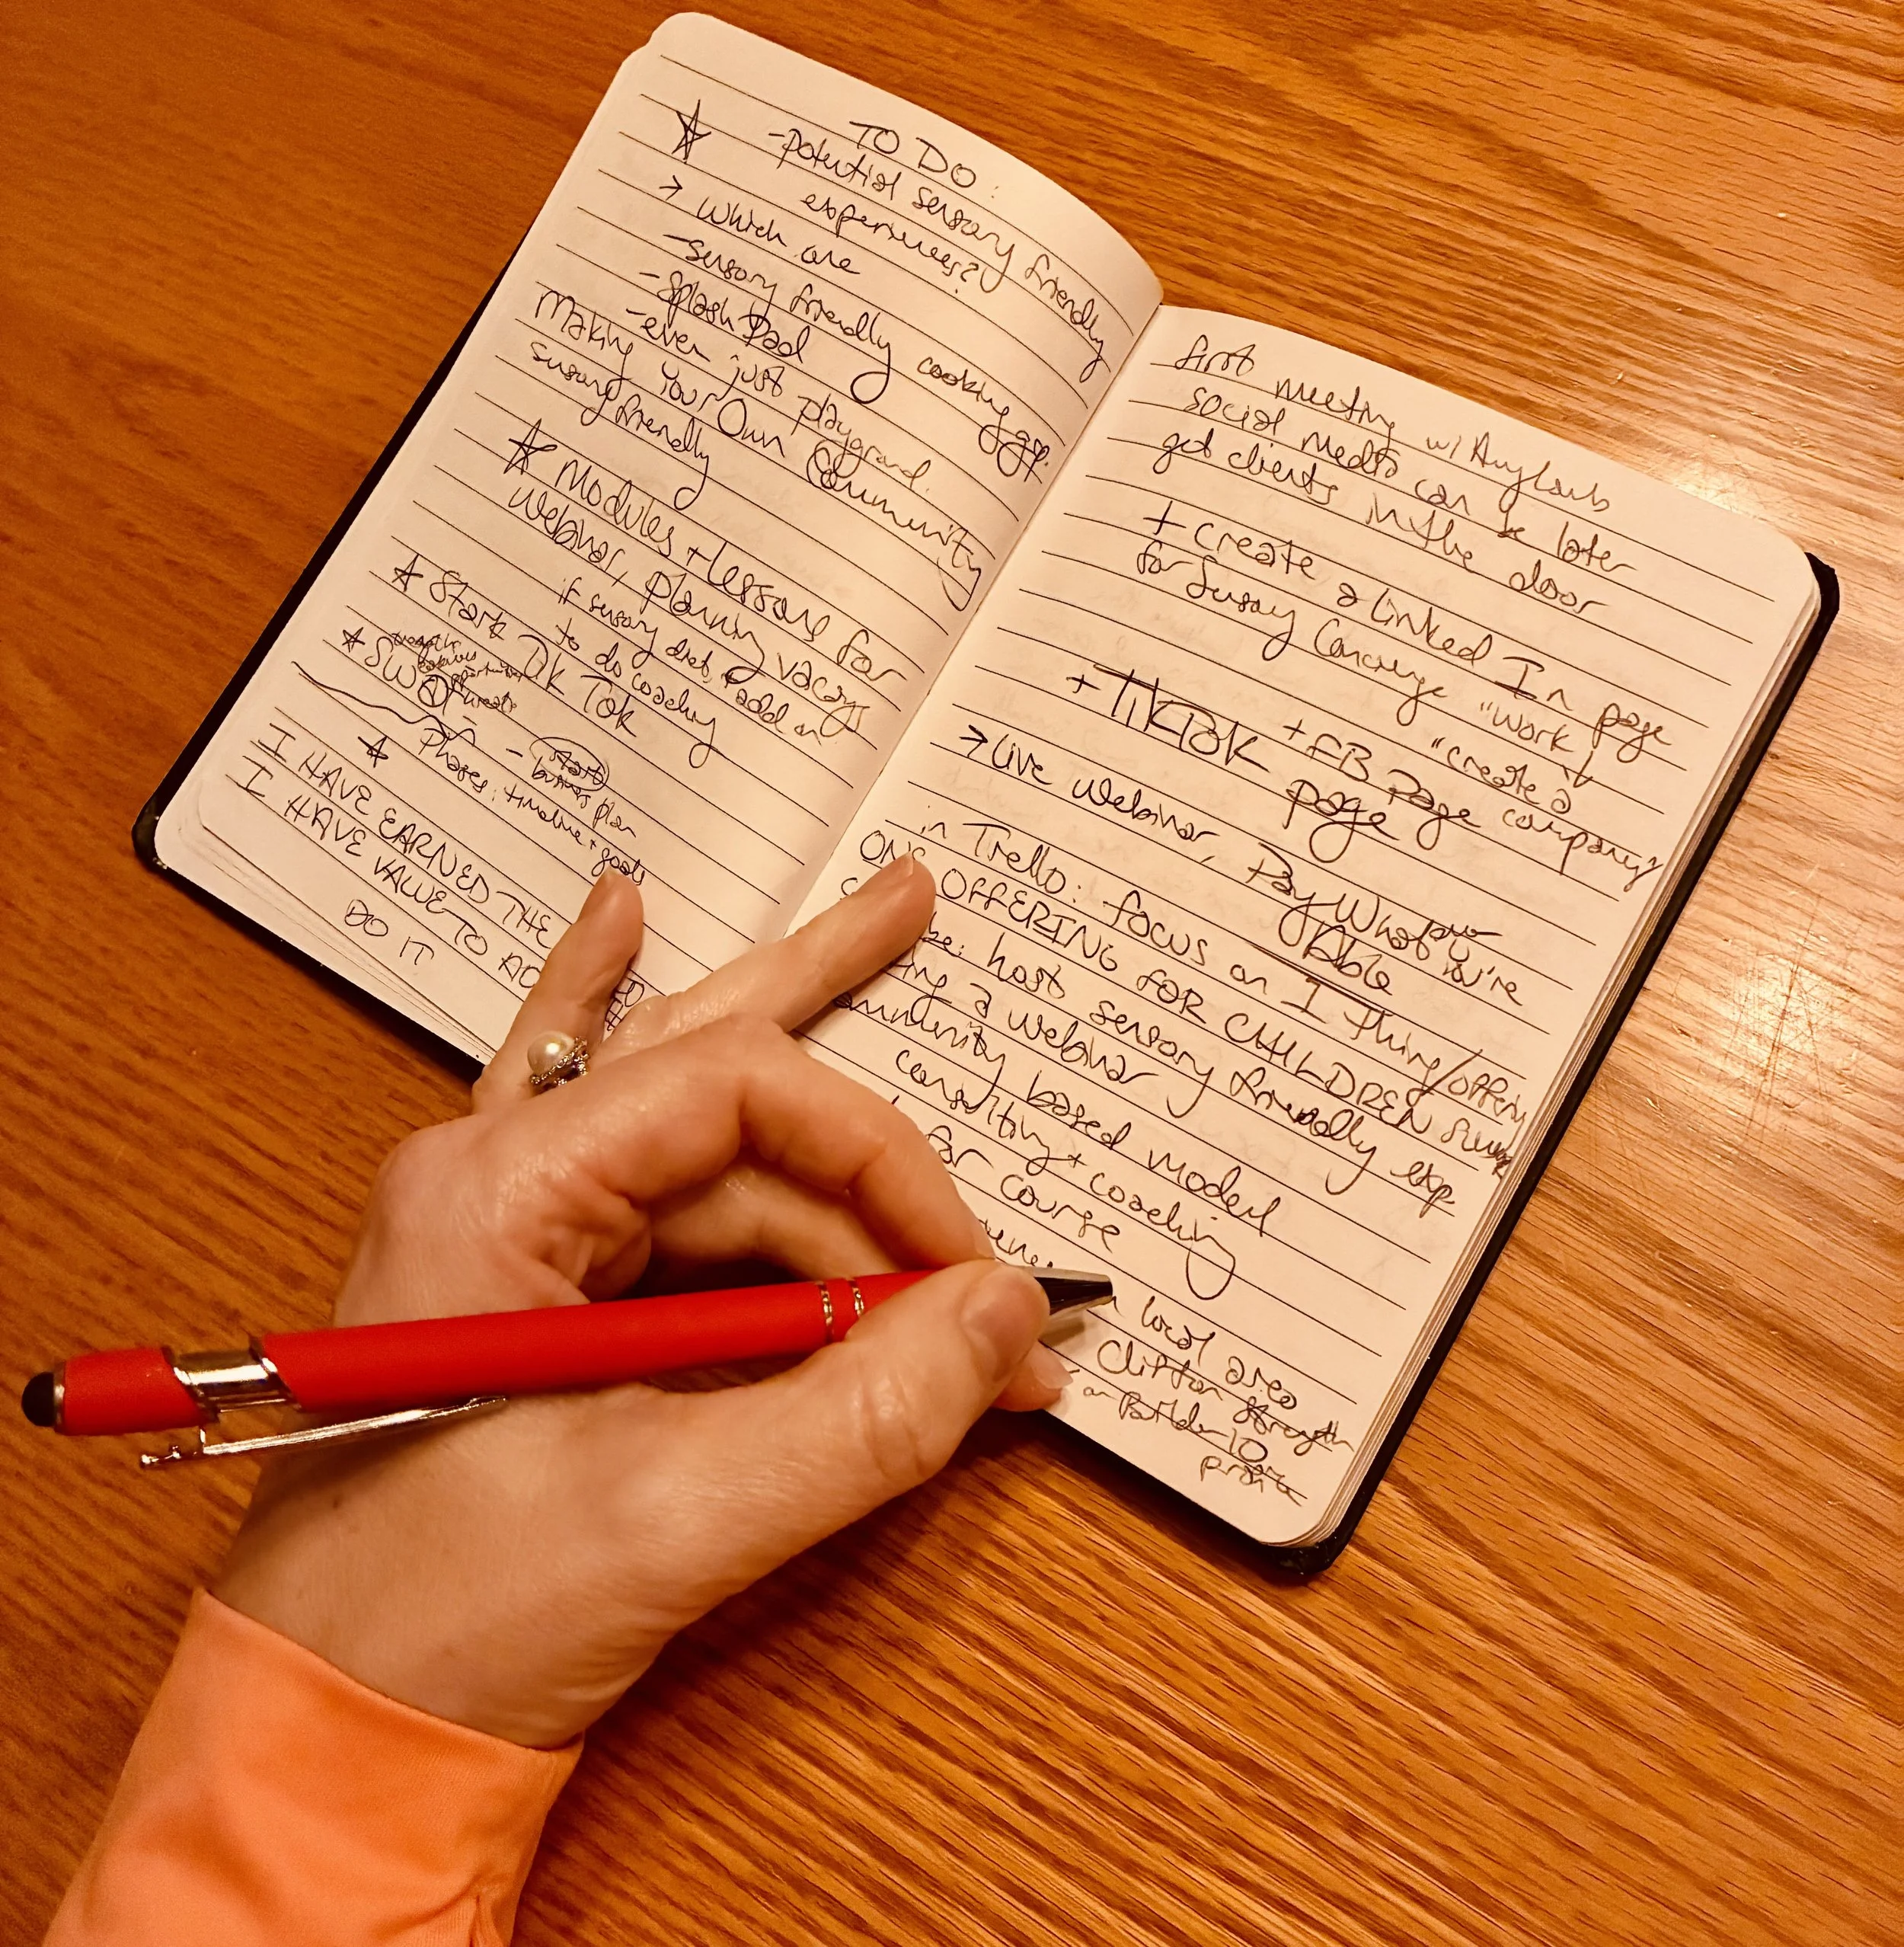 TO DO:
-potential sensory friendly
experiences?
→ which are
-sensory friendly cooking
-splash pad
-even just playground.
Making Your Own Community
sensory friendly
Modules + lessons for
webinar, planning
if sensory diet, add on
to do coaching
Start Tik Tok
SWOT
threats
- start
business plan
Phases: timeline + goals
I HAVE EARNED THE
I HAVE VALUE TO
DO IT
first meeting w/
social media can be later
get clients in the door
+ create a Linked In page
for Sensory Concierge "work ↓
"create a
company"
+ FB Page
+ TikTok page
→ Live webinar, Pay What You're
Able
in Trello: focus on 1 thing/offering
ONE OFFERING FOR CHILDREN
be: host sensory friendly exp
a webinar
community based model
consulting + coaching
for course
local area
Clifton Strength
or